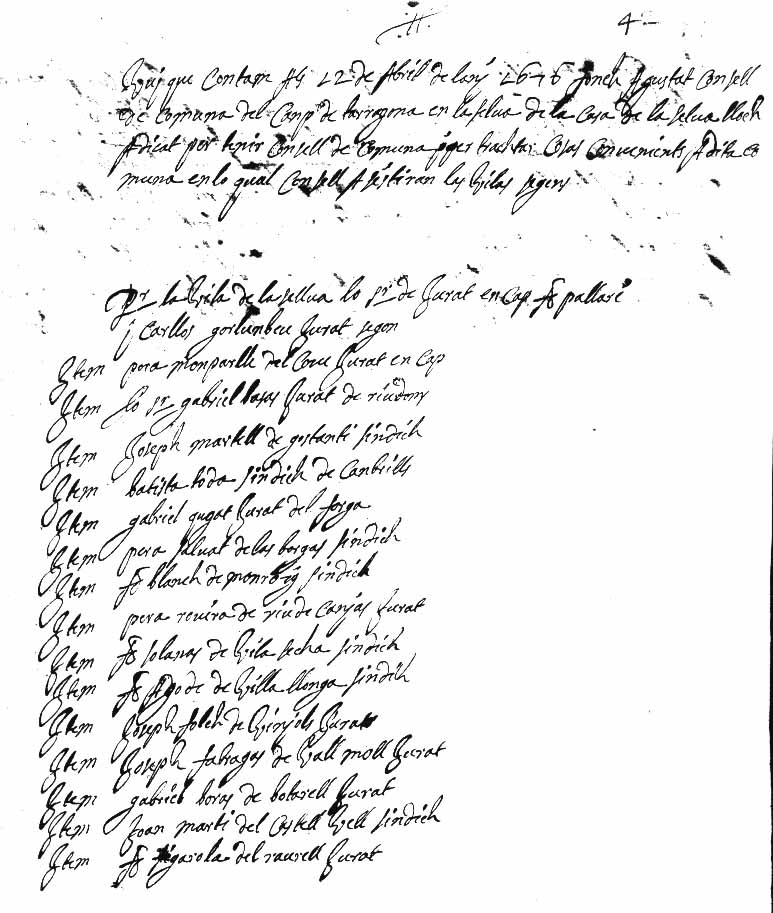 4
Vuy que Contam Als 22 de Abril de lany 1646 fonch Ajustat Consell
de Comuna del Camp de tarragona en la selva de la Casa de la selva lloch
Adicat per tenir Consell de Comuna y per tractar Cosas Convenients A dita Co
muna en lo qual Consell Asistiran las Vilas segens
Pr la Vila de la sellva lo sr de Jurat en Cap fr pallares
y Carllos Jurat segon
Item pera monparlle del Jurat en Cap
Item lo sr gabriel Jurat de riudoms
Item Joseph martell de gostanti sindich
Item batista toda sindich de Canbrills
Item gabriel gugat Jurat del forga
Item pera saluat de las borgas sindich
Item fr blanch de monroig sindich
Item pera rouira de riu de Canyas Jurat
Item fr solanas de Vila secha sindich
Item fr de Villa llonga sindich
Item Joseph folch de Vinyols Jurat
Item Joseph fabragas de Vall moll Jurat
Item gabriel boras de botarell Jurat
Item Joan marti del Castell Vell sindich
Item fr figarola del raurell Jurat